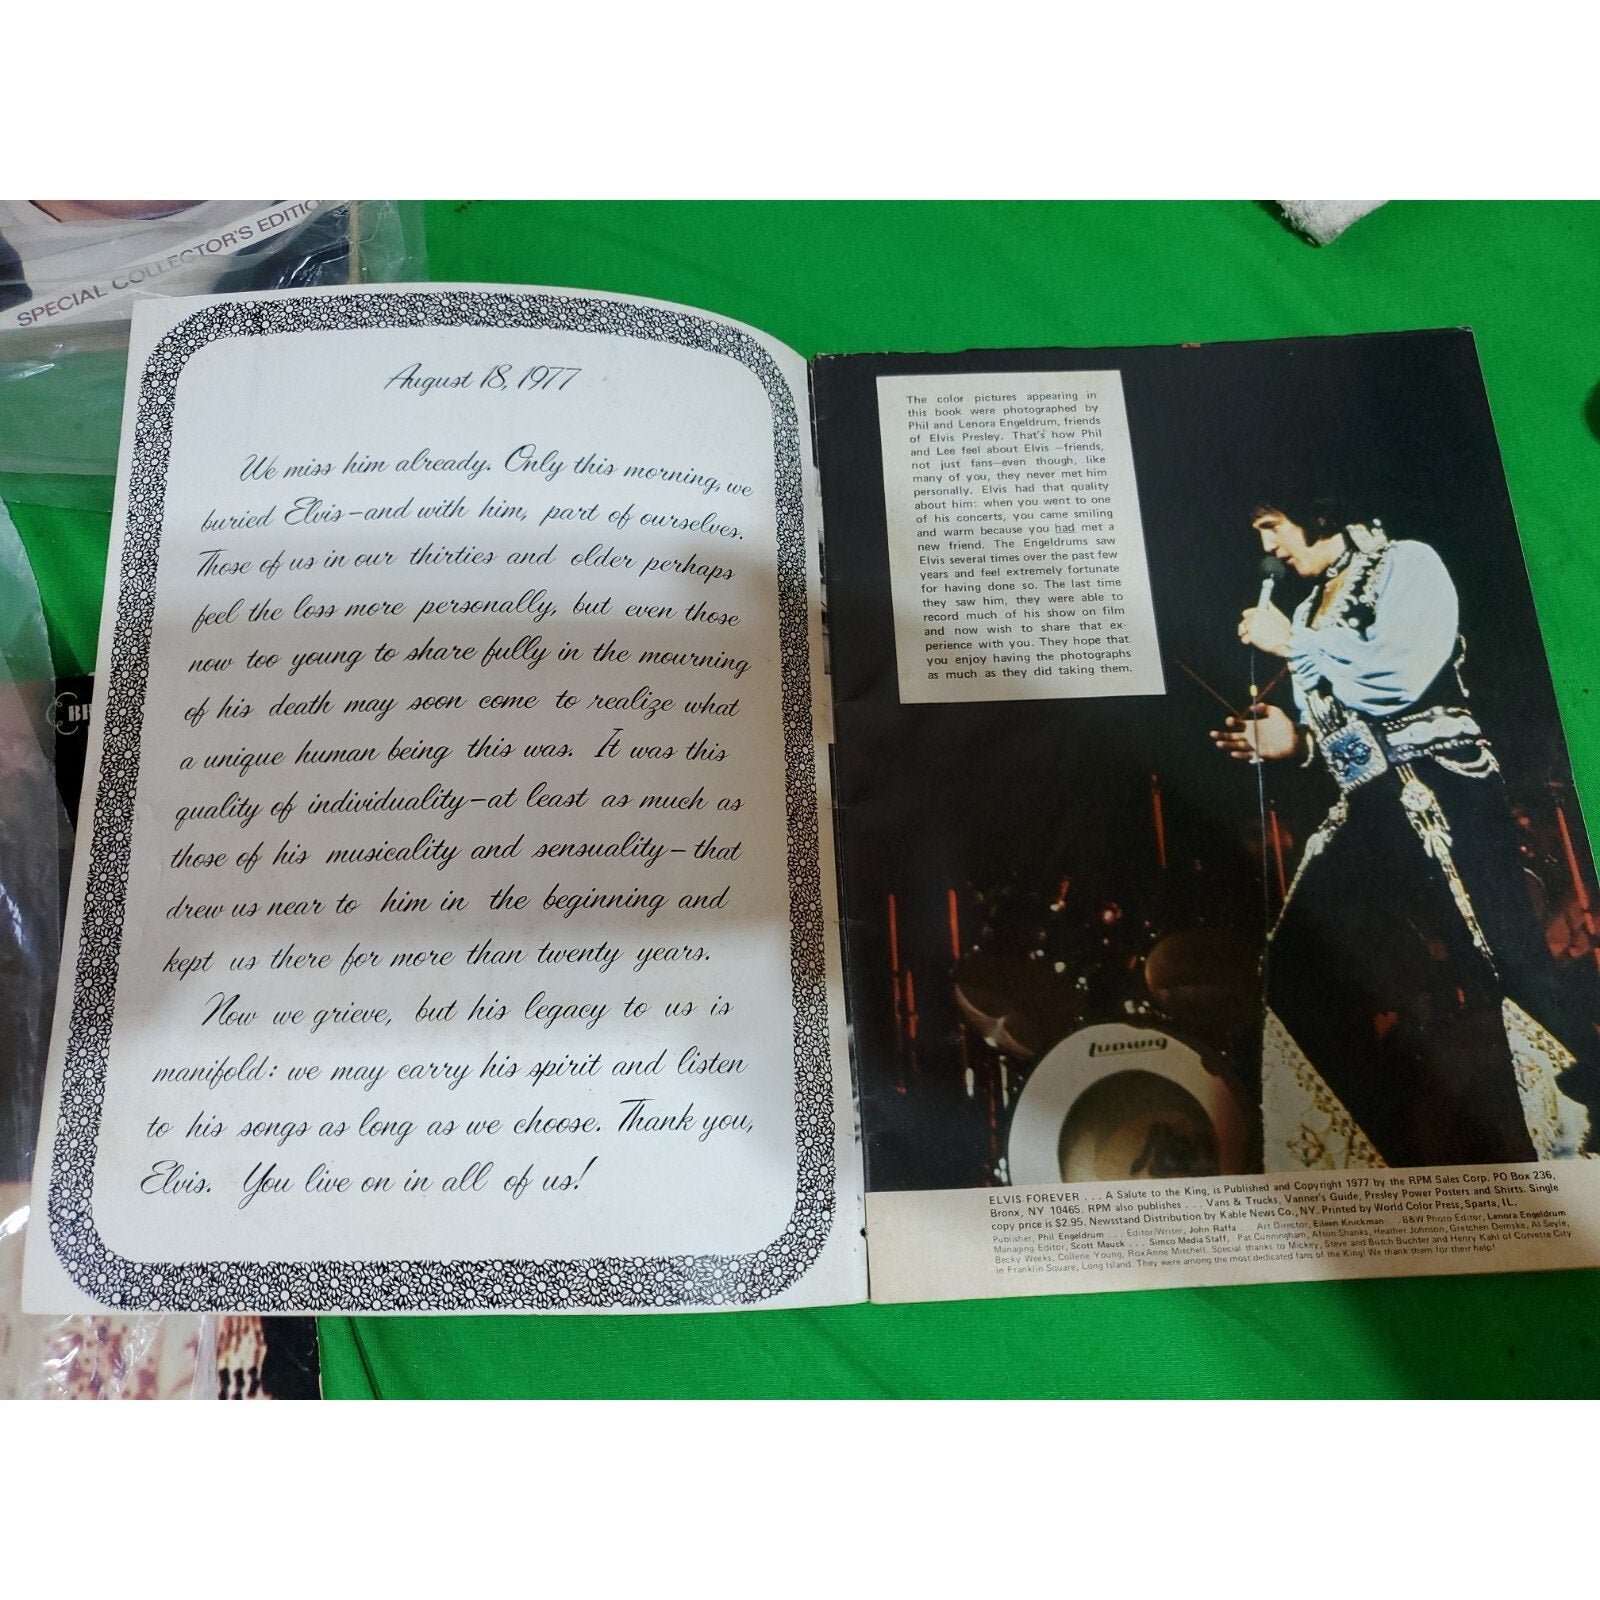 SPECIAL COLLECTOR'S EDITIO
August 18, 1977
We miss him already. Only this morning, we
buried Elvis—and with him, part of ourselves.
Those of us in our thirties and older perhaps
feel the loss more personally, but even those
now too young to share fully in the mourning
of his death may soon come to realize what
a unique human being this was. It was this
quality of individuality—at least as much as
those of his musicality and sensuality—that
drew us near to him in the beginning and
kept us there for more than twenty years.
Now we grieve, but his legacy to us is
manifold: we may carry his spirit and listen
to his songs as long as we choose. Thank you,
Elvis. You live on in all of us!
The color pictures appearing in
this book were photographed by
Phil and Lenora Engeldrum, friends
of Elvis Presley. That's how Phil
and Lee feel about Elvis —friends,
not just fans—even though, like
many of you, they never met him
personally. Elvis had that quality
about him: when you went to one
of his concerts, you came smiling
and warm because you had met a
new friend. The Engeldrums saw
Elvis several times over the past few
years and feel extremely fortunate
for having done so. The last time
they saw him, they were able to
record much of his show on film
and now wish to share that ex-
perience with you. They hope that
you enjoy having the photographs
as much as they did taking them.
Ludwig
ELVIS FOREVER . . . A Salute to the King, is Published and Copyright 1977 by the RPM Sales Corp. PO Box 236,
Bronx, NY 10465. RPM also publishes . . . Vans & Trucks, Vanner's Guide, Presley Power Posters and Shirts. Single
copy price is $2.95. Newsstand Distribution by Kable News Co., NY. Printed by World Color Press, Sparta, IL.
Publisher, Phil Engeldrum . . . Editor/Writer, John Raffa . . . Art Director, Eileen Knickman . . . B&W Photo Editor, Lenora Engeldrum
Managing Editor, Scott Mauck . . . Simco Media Staff, Pat Cunningham, Afton Shanks, Heather Johnson, Gretchen Demske, Al Seyle,
Becky Weeks, Collene Young, RoxAnne Mitchell. Special thanks to Mickey, Steve and Butch Buchter and Henry Kahl of Corvette City
in Franklin Square, Long Island. They were among the most dedicated fans of the King! We thank them for their help!